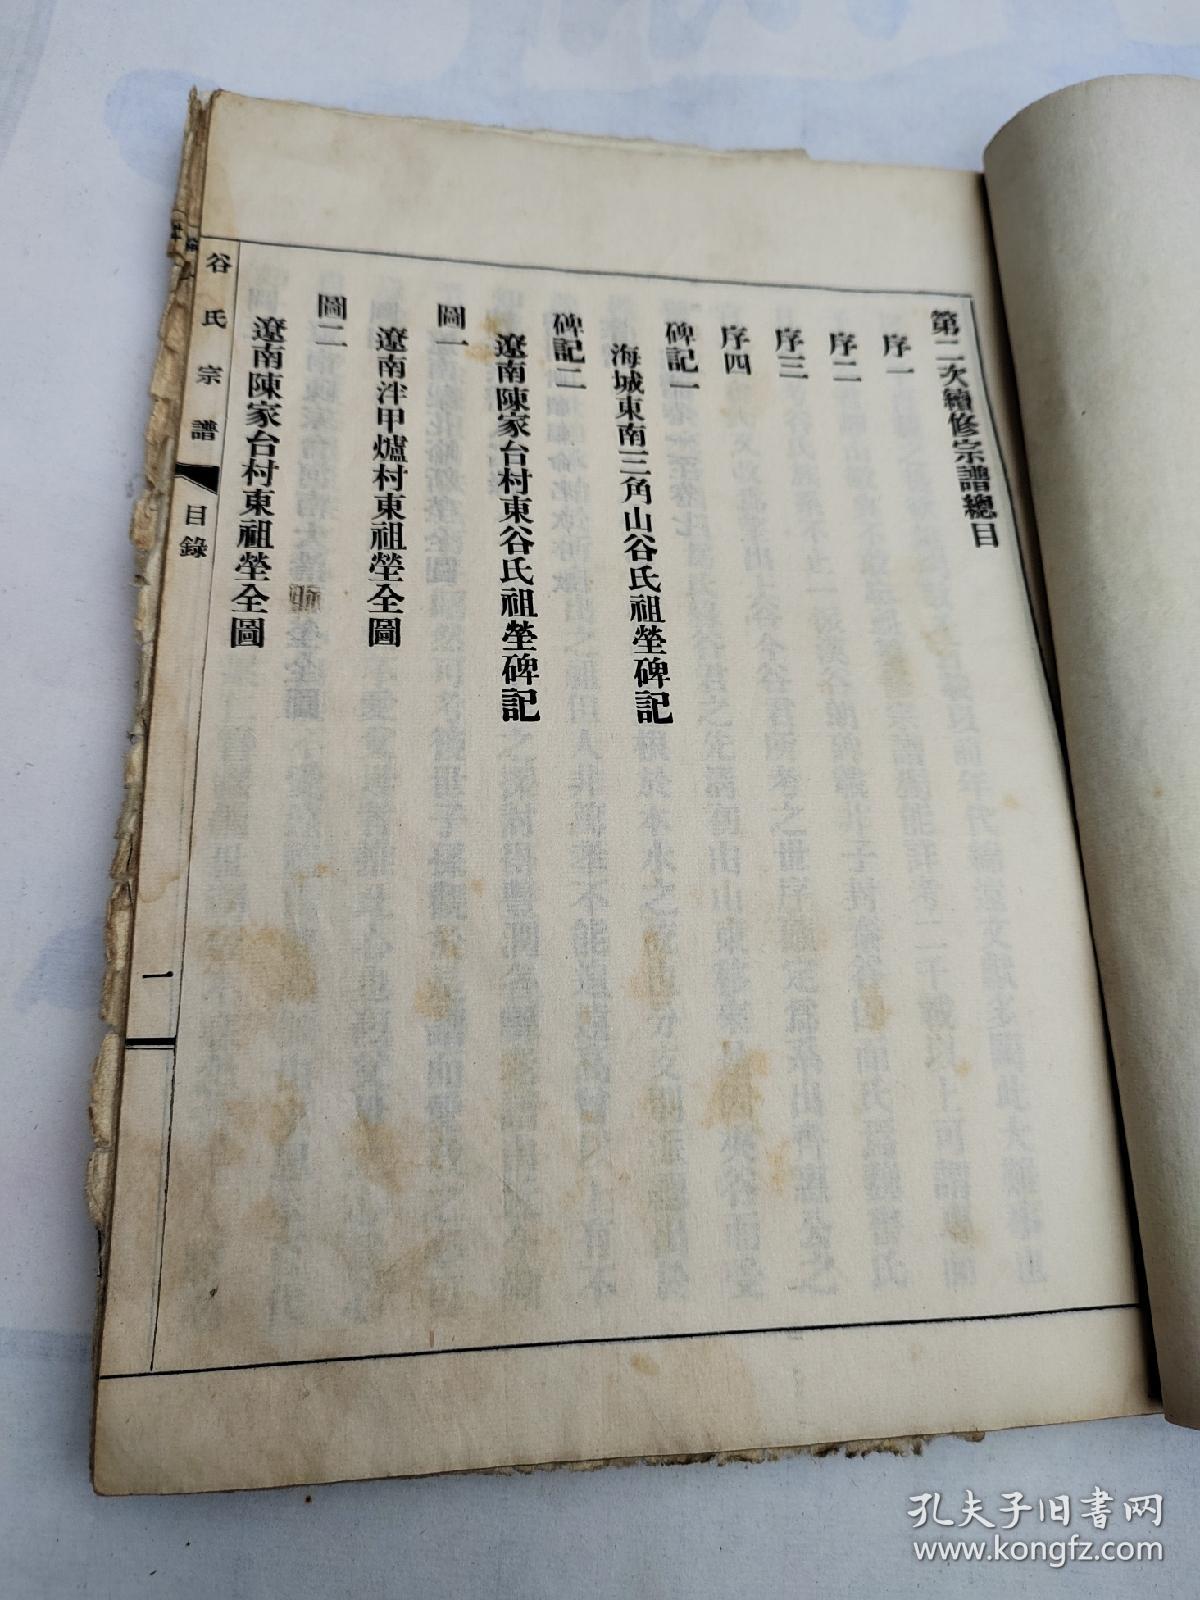 第二次續修宗譜總目
序一
序二
序三
序四
碑記一
海城東南三角山谷氏祖塋碑記
碑記二
遼南陳家台村東谷氏祖塋碑記
圖一
遼南泮甲爐村東祖塋全圖
圖二
遼南陳家台村東祖塋全圖
谷氏宗譜
目錄
一
孔夫子旧书网
www.kongfz.com